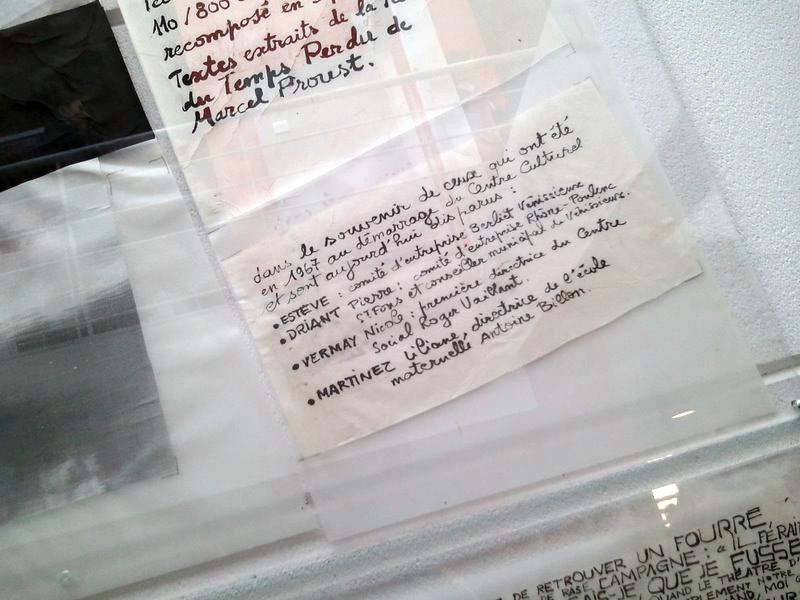 110/800
recomposé en
Textes extraits de la
du Temps Perdu de
Marcel Proust.
dans le souvenir de ceux qui ont été
en 1967 au démarrage du Centre Culturel
et sont aujourd'hui disparus :
• ESTÈVE : comité d'entreprise Berliet Vénissieux
• DRIANT Pierre : comité d'entreprise Rhône-Poulenc
ST Fons et conseiller municipal de Vénissieux.
• VERMAY Nicole : première directrice du Centre
Social Roger Vaillant.
• MARTINEZ Liliane, directrice de l'école
maternelle Antoine Billon.
DE RETROUVER UN FOURRÉ,
DE RASE CAMPAGNE : " IL FERAI
-JE, QUE JE FUSSE
QUAND LE THÉATRE D'
NOTRE
MOI